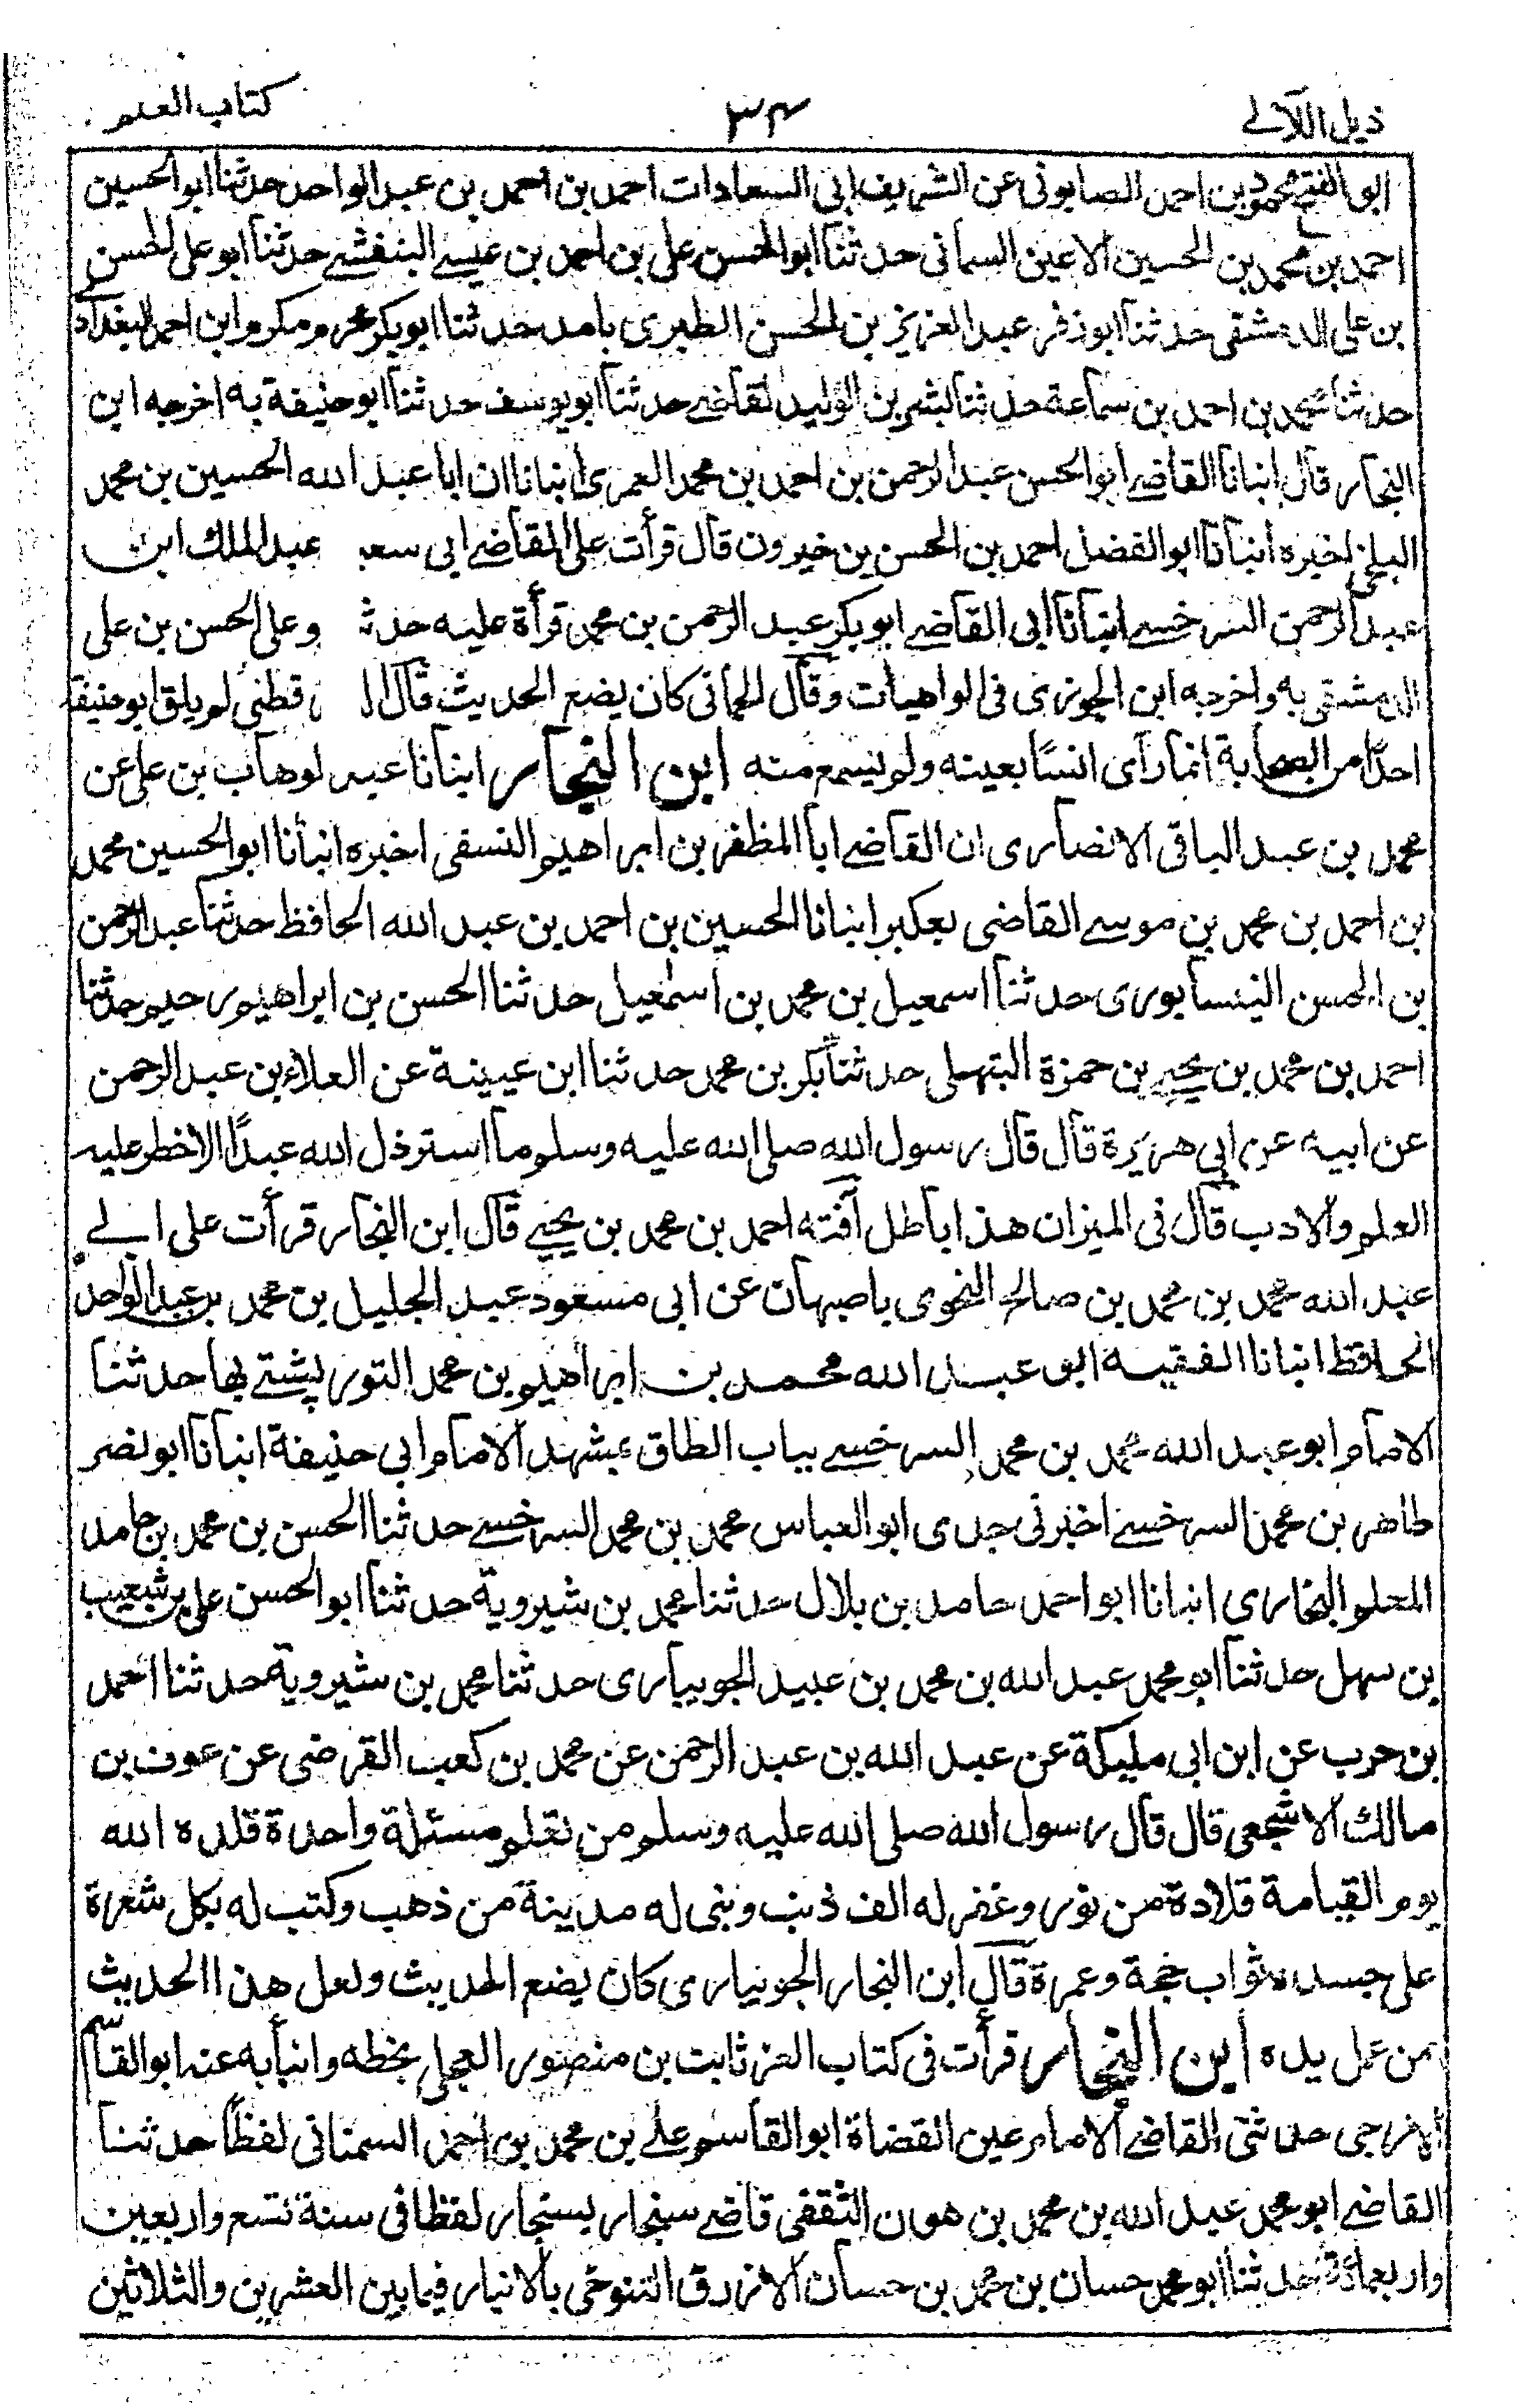 ذيل اللآلے
٣٤
كتاب العلم
ابو الفتح محمود بن احمد الصابونى عن الشريف ابى السعادات احمد بن احمد بن عبد الواحد حدثنا ابو الحسين
احمد بن محمد بن الحسين الاعين السمانى حدثنا ابو الحسن على بن احمد بن عيسے البنفشے حدثنا ابو على الحسن
بن على الدمشقى حدثنا ابو ذفر عبد العزيز بن الحسن الطبرى بامد حدثنا ابو بكر مكرم ابن احمد البغداد
حدثنا محمد بن احمد بن سماعة حدثنا بشر بن الوليد القاضے حدثنا ابو يوسف حدثنا ابو حنيفة به اخرجه ابن
النجار قال انبانا القاضے ابو الحسن عبد الرحمن بن احمد بن محمد العمرى انبانا ان ابا عبد الله الحسين بن محمد
البلخى اخبره انبانا ابو الفضل احمد بن الحسن بن خيرون قال قرأت على القاضے ابى سعد عبد الملك ابن
عبد الرحمن السرخسے انبانا ابى القاضے ابو بكر عبد الرحمن بن محمد قرأة عليه حدث وعلى الحسن بن على
الدمشقى به واخرجه ابن الجوزى فى الواهيات وقال الحمانى كان يضع الحديث قال ال رقطنى لم يلق ابو حنيفة
احدًا من الصحابة انما رآى انسًا بعينه ولم يسمع منه ابن النجار انبانا عبد لوهاب بن على عن
محمد بن عبد الباقى الانصارى ان القاضے ابا المظفر بن ابراهيم النسفى اخبره انبأنا ابو الحسين محمد
بن احمد بن محمد بن موسے القاضى بعكبر انبانا الحسين بن احمد بن عبد الله الحافظ حدثنا عبد الرحمن
بن الحسن النيسابورى حدثنا اسمعيل بن محمد بن اسمعيل حدثنا الحسن بن ابراهيم رحيم حدثنا
احمد بن محمد بن يحيے بن حمزة البتهلى حدثنا بكر بن محمد حدثنا ابن عيينة عن العلاء بن عبد الرحمن
عن ابيه عن ابى هريرة قال قال رسول الله صلى الله عليه وسلم ما استرذل الله عبدًا الا خطر عليه
العلم والادب قال فى الميزان هذا باطل آفته احمد بن محمد بن يحيے قال ابن النجار قرأت على ابے
عبد الله محمد بن محمد بن صالح النحوى باصبهان عن ابى مسعود عبد الجليل بن محمد بن عبد الواحد
الحافظ انبانا الفقيه ابو عبد الله محمد بن ابراهيم بن محمد التورپشتے بها حدثنا
الامام ابو عبد الله محمد بن محمد السرخسے بباب الطاق بمشهد الامام ابى حنيفة انبانا ابو نصر
طاهر بن محمد السرخسے اخبرنى جدى ابو العباس محمد بن محمد السرخسے حدثنا الحسن بن محمد بن حامد
المعلم البخارى انبانا ابو احمد حامد بن بلال حدثنا محمد بن شيروية حدثنا ابو الحسن على بن شعيب
بن سهل حدثنا ابو محمد عبد الله بن محمد بن عبيد الجويبارى حدثنا محمد بن شيروية حدثنا احمد
بن حرب عن ابن ابى مليكة عن عبد الله بن عبد الرحمن عن محمد بن كعب القرضى عن عوف بن
مالك الاشجعى قال قال رسول الله صلى الله عليه وسلم من تعلم مسئلة واحدة قلده الله
يوم القيامة قلادة من نور وغفر له الف ذنب وبنى له مدينة من ذهب وكتب له بكل شعرة
على جسده ثواب حجة وعمرة قال ابن النجار الجوبيارى كان يضع الحديث ولعل هذا الحديث
من عمل يده ابن النجار قرأت فى كتاب العز ثابت بن منصور العجلى بخطه وانبأ به عنه ابو القاسم
الازجى حدثنى القاضے الامام عين القضاة ابو القاسم علے بن محمد بن احمد السمنانى لفظًا حدثنا
القاضے ابو محمد عبد الله بن محمد بن هون الثقفى قاضے سنجار بسنجار لفظا فى سنة تسع واربعين
واربعمائة حدثنا ابو محمد حسان بن محمد بن حسان الازرق التنوخى بالانبار فيما بين العشرين والثلاثين